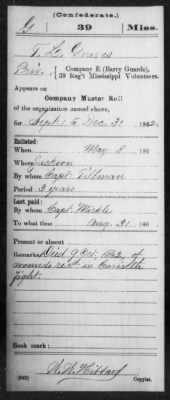 (Confederate.)
G 39 Miss.
T. L.
Priv., Company E (Barry Guards),
39 Reg't Mississippi Volunteers.
Appears on
Company Muster Roll
of the organization named above,
for Sept 1 to Dec 31, 1862.
Enlisted:
When May 8, 186
Where Jackson
By whom Capt. Tillman
Period 3 years
Last paid:
By whom Capt. Mickle
To what time Aug. 31, 186
Present or absent
Remarks: Died 9 Oct. 1862, of
wounds rec'd in Corinth
fight.
Book mark:
(642) Copyist.